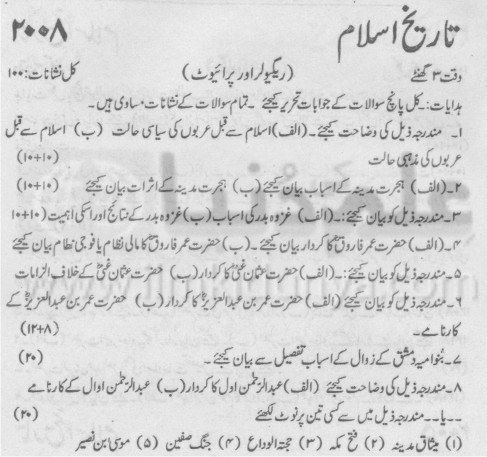 تاریخ اسلام ۲۰۰۸
وقت ۳ گھنٹے (ریگولر اور پرائیوٹ) کل نشانات: ۱۰۰
ہدایات:۔ کل پانچ سوالات کے جوابات تحریر کیجئے ۔ تمام سوالات کے نشانات مساوی ہیں۔
۱۔ مندرجہ ذیل کی وضاحت کیجئے۔ (الف) اسلام سے قبل عربوں کی سیاسی حالت (ب) اسلام سے قبل
عربوں کی مذہبی حالت (۱۰+۱۰)
۲۔ (الف) ہجرت مدینہ کے اسباب بیان کیجئے (ب) ہجرت مدینہ کے اثرات بیان کیجئے (۱۰+۱۰)
۳۔ مندرجہ ذیل کو بیان کیجئے:۔ (الف) غزوہ بدر کی اسباب (ب) غزوہ بدر کے نتائج اور اسکی اہمیت (۱۰+۱۰
۴۔ (الف) حضرت عمر فاروقؓ کا کردار بیان کیجئے۔ (ب) حضرت عمر فاروقؓ کا مالی نظام یا فوجی نظام بیان کیجئے
۵۔ مندرجہ ذیل کو بیان کیجئے:۔ (الف) حضرت عثمان غنیؓ کا کردار (ب) حضرت عثمان غنیؓ کے خلاف الزامات
۶۔ مندرجہ ذیل کو بیان کیجئے (الف) حضرت عمر بن عبدالعزیزؒ کا کردار (ب) حضرت عمر بن عبدالعزیزؒ کے
کارنامے۔ (۱۲+۸)
۷۔ بنوامیہ دمشق کے زوال کے اسباب تفصیل سے بیان کیجئے۔ (۲۰)
۸۔ مندرجہ ذیل کی وضاحت کیجئے (الف) عبدالرحمٰن اول کا کردار (ب) عبدالرحمٰن اوال کے کارنامے
۔۔یا۔۔ مندرجہ ذیل میں سے کسی تین پر نوٹ لکھئے (۲۰)
(۱) میثاق مدینہ (۲) فتح مکہ (۳) حجۃ الوداع (۴) جنگ صفین (۵) موسیٰ ابن نصیر